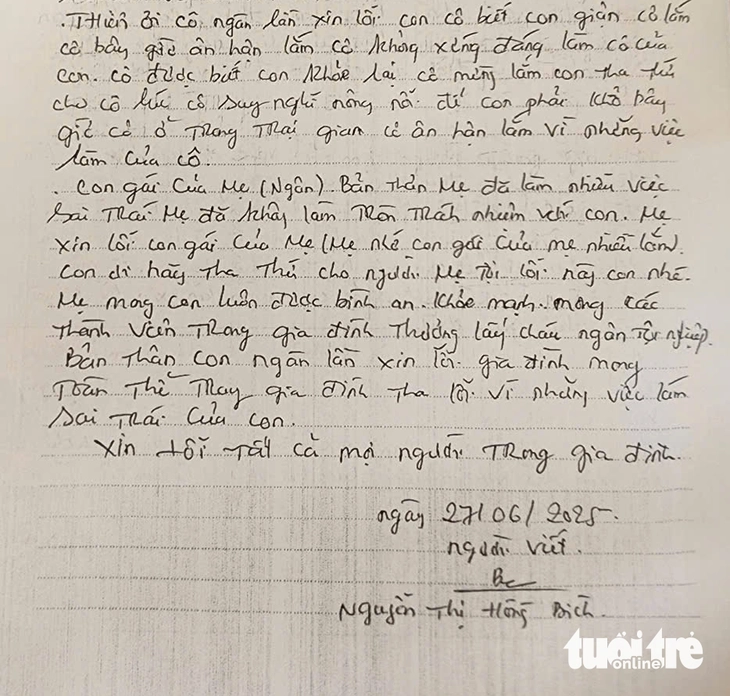 . Thiên ơi cô ngàn lần xin lỗi con cô biết con giận cô lắm
cô bây giờ ân hận lắm cô không xứng đáng làm cô của
con. cô được biết con khỏe lại cô mừng lắm con tha thứ
cho cô lúc cô suy nghĩ nông nỗi để con phải khổ bây
giờ cô ở Trong Trại giam cô ân hận lắm vì những việc
làm của cô.
. Con gái Của Mẹ (Ngân). Bản Thân Mẹ đã làm nhiều việc
Sai Trái Mẹ đã không làm Tròn Trách nhiệm với con. Mẹ
xin lỗi con gái Của Mẹ (Mẹ nhớ con gái Của mẹ nhiều lắm).
Con ơi hãy Tha Thứ cho người Mẹ Tội lỗi này con nhé.
Mẹ mong con luôn được bình an. Khỏe mạnh. mong các
Thành Viên Trong gia đình Thương lấy cháu ngân Tội nghiệp.
Bản Thân Con ngàn lần xin lỗi gia đình mong
Toàn Thể gia đình Tha lỗi Vì những việc làm
Sai Trái Của Con.
Xin lỗi Tất Cả mọi người Trong gia đình.
ngày 27/06/2025.
người viết.
Bc
Nguyễn Thị Hồng Bích.
tuổi trẻ
online